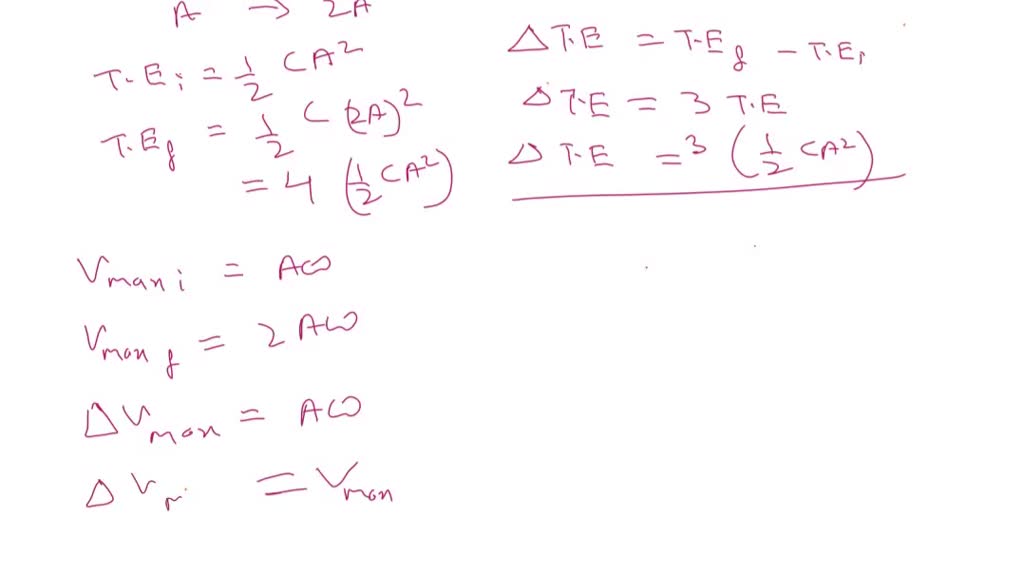 A → 2A
T.Ei = 1/2 CA²
T.Ef = 1/2 C (2A)²
= 4 (1/2 CA²)
ΔT.E = T.Ef - T.Ei
ΔT.E = 3 T.E
ΔT.E = 3 (1/2 CA²)
Vmax i = Aω
Vmax f = 2Aω
ΔVmax = Aω
ΔVm = Vmax